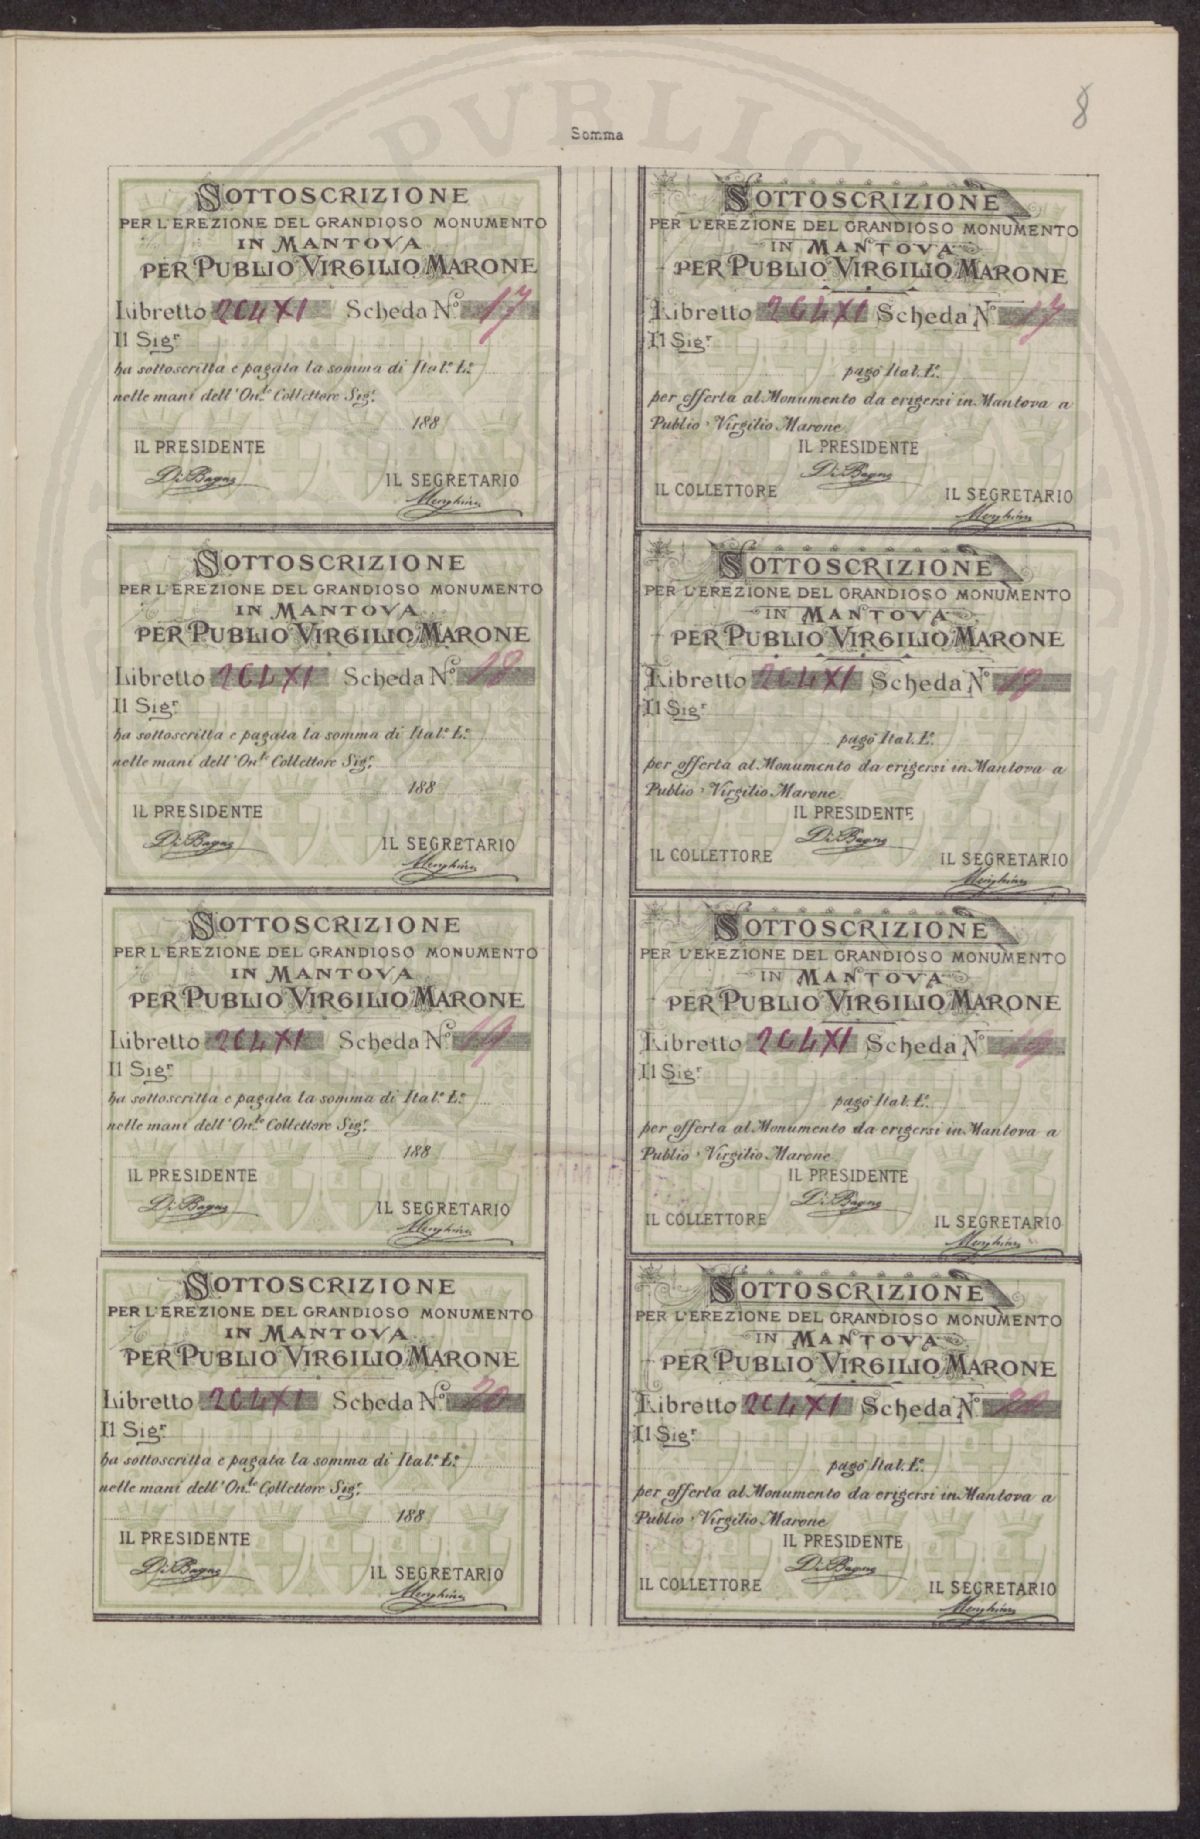 8
Somma
SOTTOSCRIZIONE
PER L'EREZIONE DEL GRANDIOSO MONUMENTO
IN MANTOVA
PER PUBLIO VIRGILIO MARONE
Libretto 264 XI Scheda N.º 17
Il Sig.r
ha sottoscritta e pagata la somma di Ital.e L.e
nelle mani dell'On.le Collettore Sig.r
188
IL PRESIDENTE
Di Bagno
IL SEGRETARIO
Menghini
SOTTOSCRIZIONE
PER L'EREZIONE DEL GRANDIOSO MONUMENTO
IN MANTOVA
PER PUBLIO VIRGILIO MARONE
Libretto 264 XI Scheda N.º 17
Il Sig.r
pagò Ital. L.e
per offerta al Monumento da erigersi in Mantova a
Publio Virgilio Marone
IL PRESIDENTE
Di Bagno
IL COLLETTORE IL SEGRETARIO
Menghini
SOTTOSCRIZIONE
PER L'EREZIONE DEL GRANDIOSO MONUMENTO
IN MANTOVA
PER PUBLIO VIRGILIO MARONE
Libretto 264 XI Scheda N.º 18
Il Sig.r
ha sottoscritta e pagata la somma di Ital.e L.e
nelle mani dell'On.le Collettore Sig.r
188
IL PRESIDENTE
Di Bagno
IL SEGRETARIO
Menghini
SOTTOSCRIZIONE
PER L'EREZIONE DEL GRANDIOSO MONUMENTO
IN MANTOVA
PER PUBLIO VIRGILIO MARONE
Libretto 264 XI Scheda N.º 18
Il Sig.r
pagò Ital. L.e
per offerta al Monumento da erigersi in Mantova a
Publio Virgilio Marone
IL PRESIDENTE
Di Bagno
IL COLLETTORE IL SEGRETARIO
Menghini
SOTTOSCRIZIONE
PER L'EREZIONE DEL GRANDIOSO MONUMENTO
IN MANTOVA
PER PUBLIO VIRGILIO MARONE
Libretto 264 XI Scheda N.º 19
Il Sig.r
ha sottoscritta e pagata la somma di Ital.e L.e
nelle mani dell'On.le Collettore Sig.r
188
IL PRESIDENTE
Di Bagno
IL SEGRETARIO
Menghini
SOTTOSCRIZIONE
PER L'EREZIONE DEL GRANDIOSO MONUMENTO
IN MANTOVA
PER PUBLIO VIRGILIO MARONE
Libretto 264 XI Scheda N.º 19
Il Sig.r
pagò Ital. L.e
per offerta al Monumento da erigersi in Mantova a
Publio Virgilio Marone
IL PRESIDENTE
Di Bagno
IL COLLETTORE IL SEGRETARIO
Menghini
SOTTOSCRIZIONE
PER L'EREZIONE DEL GRANDIOSO MONUMENTO
IN MANTOVA
PER PUBLIO VIRGILIO MARONE
Libretto 264 XI Scheda N.º 20
Il Sig.r
ha sottoscritta e pagata la somma di Ital.e L.e
nelle mani dell'On.le Collettore Sig.r
188
IL PRESIDENTE
Di Bagno
IL SEGRETARIO
Menghini
SOTTOSCRIZIONE
PER L'EREZIONE DEL GRANDIOSO MONUMENTO
IN MANTOVA
PER PUBLIO VIRGILIO MARONE
Libretto 264 XI Scheda N.º 20
Il Sig.r
pagò Ital. L.e
per offerta al Monumento da erigersi in Mantova a
Publio Virgilio Marone
IL PRESIDENTE
Di Bagno
IL COLLETTORE IL SEGRETARIO
Menghini